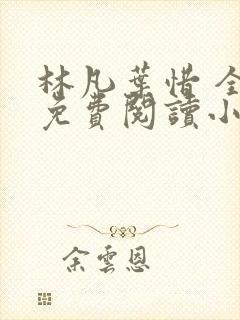 林凡葉惜 全
免費閱讀小
余雲恩